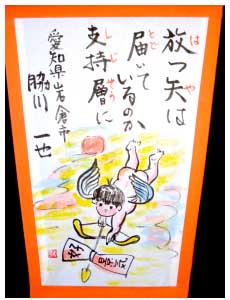 放つ矢は
はや
届いているのか
とど
支持層に
しじそう
愛知県岩倉市
脇川 一也